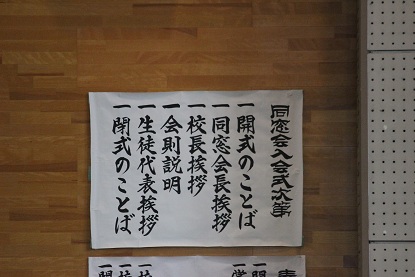 同窓会入会式次第
一開式のことば
一同窓会長挨拶
一校長挨拶
一会則説明
一生徒代表挨拶
一閉式のことば